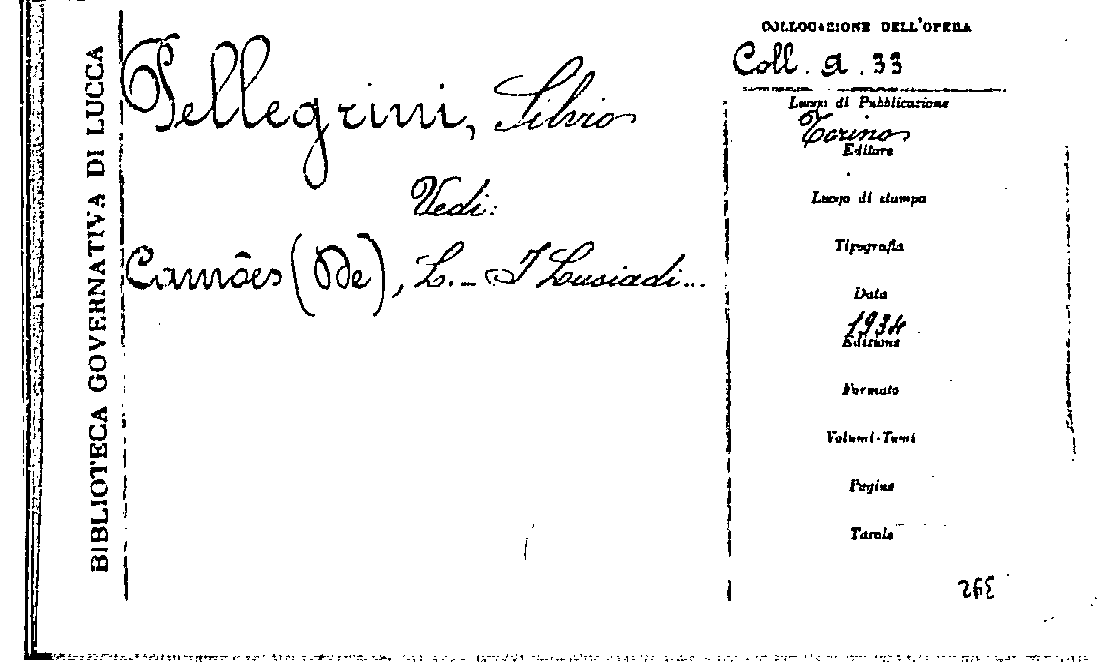 BIBLIOTECA GOVERNATIVA DI LUCCA
Pellegrini, Silvio
Vedi:
Camões (De), L. - I Lusiadi...
COLLOCAZIONE DELL'OPERA
Coll. A. 33
Luogo di Pubblicazione
Torino
Editore
Luogo di stampa
Tipografia
Data
1934
Edizione
Formato
Volumi-Tomi
Pagine
Tavole